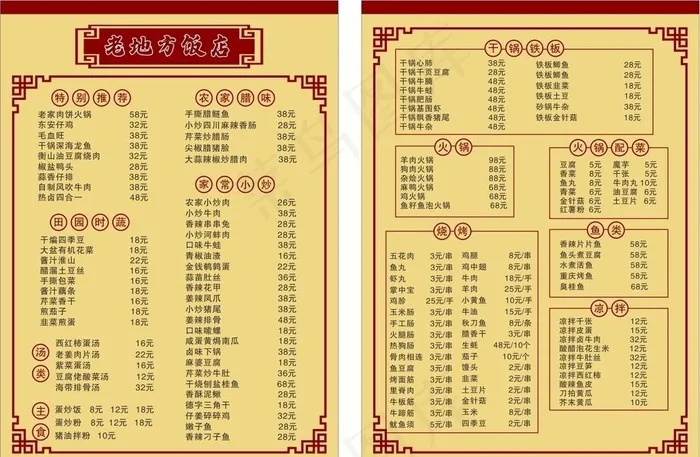 老地方饭店
特别推荐
老家肉饼火锅 58元
东安仔鸡 32元
毛血旺 38元
干锅深海龙鱼 38元
衡山油豆腐烧肉 32元
椒盐鸭头 28元
蒜香仔排 38元
自制风吹牛肉 38元
热卤四合一 48元
田园时蔬
干煸四季豆 18元
大盆有机花菜 18元
酱汁淮山 22元
醋溜土豆丝 16元
手撕包菜 16元
酱汁藕条 18元
芹菜香干 16元
煎茄子 18元
韭菜煎蛋 18元
汤类
西红柿蛋汤 16元
老姜肉片汤 22元
紫菜蛋汤 16元
豆腐佬酸菜汤 32元
海带排骨汤 32元
主食
蛋炒饭 8元 12元 18元
蛋炒粉 8元 12元 18元
猪油拌粉 10元
农家腊味
手撕腊鲢鱼 38元
小炒四川麻辣香肠 28元
芹菜炒腊肠 38元
尖椒腊猪脸 38元
大蒜辣椒炒腊肉 38元
家常小炒
农家小炒肉 26元
小炒牛肉 38元
香辣串串兔 28元
小炒河鲜肉 28元
口味牛蛙 38元
青椒油渣 16元
金钱鹌鹑蛋 22元
蒜苗肚丝 36元
香辣花甲 28元
姜辣凤爪 38元
小炒猪尾 38元
姜辣排骨 48元
口味嗦螺 18元
咸蛋黄焗南瓜 18元
卤味下锅 38元
麻婆豆腐 18元
芹菜炒牛肚 36元
干烧刨盐桂鱼 68元
香酥泥鳅 38元
德字三角干 18元
仔姜碎碎鸡 32元
嫩子鱼 28元
香辣刁子鱼 28元
干锅铁板
干锅心肺 38元
干锅千页豆腐 28元
干锅牛腩 48元
干锅牛蛙 48元
干锅肥肠 48元
干锅基围虾 48元
干锅飘香猪尾 48元
干锅牛杂 48元
铁板鲫鱼 28元
铁板鲫鱼 28元
铁板韭菜 18元
铁板土豆 18元
砂锅牛杂 38元
铁板金针菇 18元
火锅
羊肉火锅 98元
狗肉火锅 98元
杂烩火锅 68元
麻鸭火锅 68元
鸡火锅 68元
鱼籽鱼泡火锅 68元
火锅配菜
豆腐 5元 魔芋 5元
香菜 8元 千张 5元
鱼丸 8元 牛肉丸 10元
青菜 5元 油豆腐 6元
金针菇 6元 土豆片 6元
红薯粉 6元
烧烤
五花肉 3元/串 鸡腿 8元/串
鱼丸 3元/串 鸡中翅 8元/串
虾丸 3元/串 牛肉 3元/串
掌中宝 3元/串 羊肉 25元/串
鸡胗 25元/手 小黄鱼 10元/手
玉米肠 3元/串 牛油 15元/手
手工肠 3元/串 秋刀鱼 8元/条
火腿肠 3元/串 腊香干 3元/串
热狗肠 3元/串 生蚝 48元/10个
骨肉相连 3元/串 茄子 10元/个
鱼豆腐 3元/串 馒头 2元/串
烤面筋 3元/串 韭菜 2元/串
里脊肉 3元/串 土豆片 2元/串
牛板筋 3元/串 金针菇 5元/串
牛蹄筋 3元/串 玉米 8元/串
鱿鱼须 5元/串 四季豆 2元/串
鱼类
香辣片片鱼 58元
鱼头煮豆腐 58元
水煮活鱼 58元
重庆烤鱼 58元
臭桂鱼 68元
凉拌
凉拌千张 12元
凉拌皮蛋 12元
凉拌卤牛肉 32元
酸醋泡花生米 12元
凉拌牛肚丝 32元
凉拌豆笋 12元
凉拌西红柿 12元
酸辣鱼皮 15元
刀拍黄瓜 10元
芥末黄瓜 10元